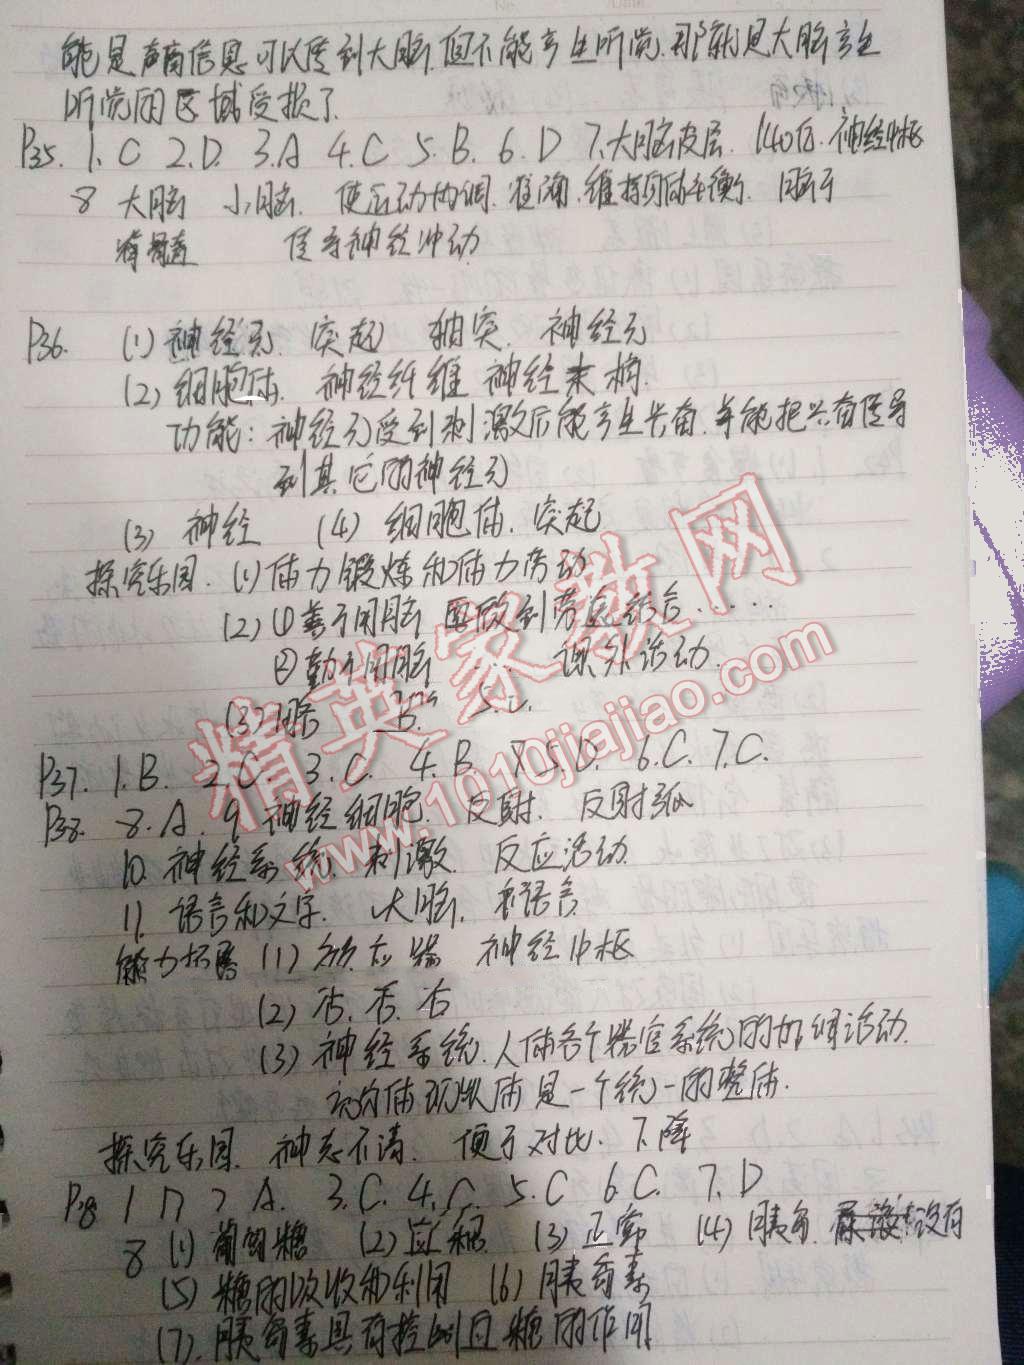 能是声音信息可以传到大脑,但不能产生听觉,那就是大脑产生
听觉的区域受损了.
P35. 1.C 2.D. 3.A 4.C 5.B. 6.D 7.大脑皮层. 140亿. 神经中枢
8 大脑 小脑. 使运动协调.准确.维持身体平衡. 脑干
脊髓 传导神经冲动
P36. (1)神经元. 突起 轴突. 神经元
(2)细胞体. 神经纤维 神经末梢.
功能:神经元受到刺激后能产生兴奋.并能把兴奋传导
到其它的神经元
(3) 神经 (4) 细胞体. 突起
探究乐园. (1)体力锻炼和体力劳动
(2)①善于用脑 要做到劳逸结合.....
②勤于用脑 课外活动.
(3)
精英家教网
www.1010jiajiao.com
P37. 1.B. 2.C. 3.C. 4.B 5.D. 6.C. 7.C.
P38. 8.A. 9.神经细胞. 反射. 反射弧
10.神经系统. 刺激. 反应活动.
11.语言和文字. 大脑. 语言
能力拓展 (1) 效应器 神经中枢
(2) 否.否.否
(3) 神经系统.人体各个器官系统的协调活动.
均体现人体是一个统一的整体.
探究乐园. 神志不清. 便于对比. 下降
1 D 2 A. 3.C. 4.C. 5.C 6.C. 7.D
8 (1)葡萄糖 (2)血糖 (3)正常 (4)胰岛. 没有
(5)糖的吸收和利用 (6)胰岛素
(7).胰岛素具有控制血糖的作用